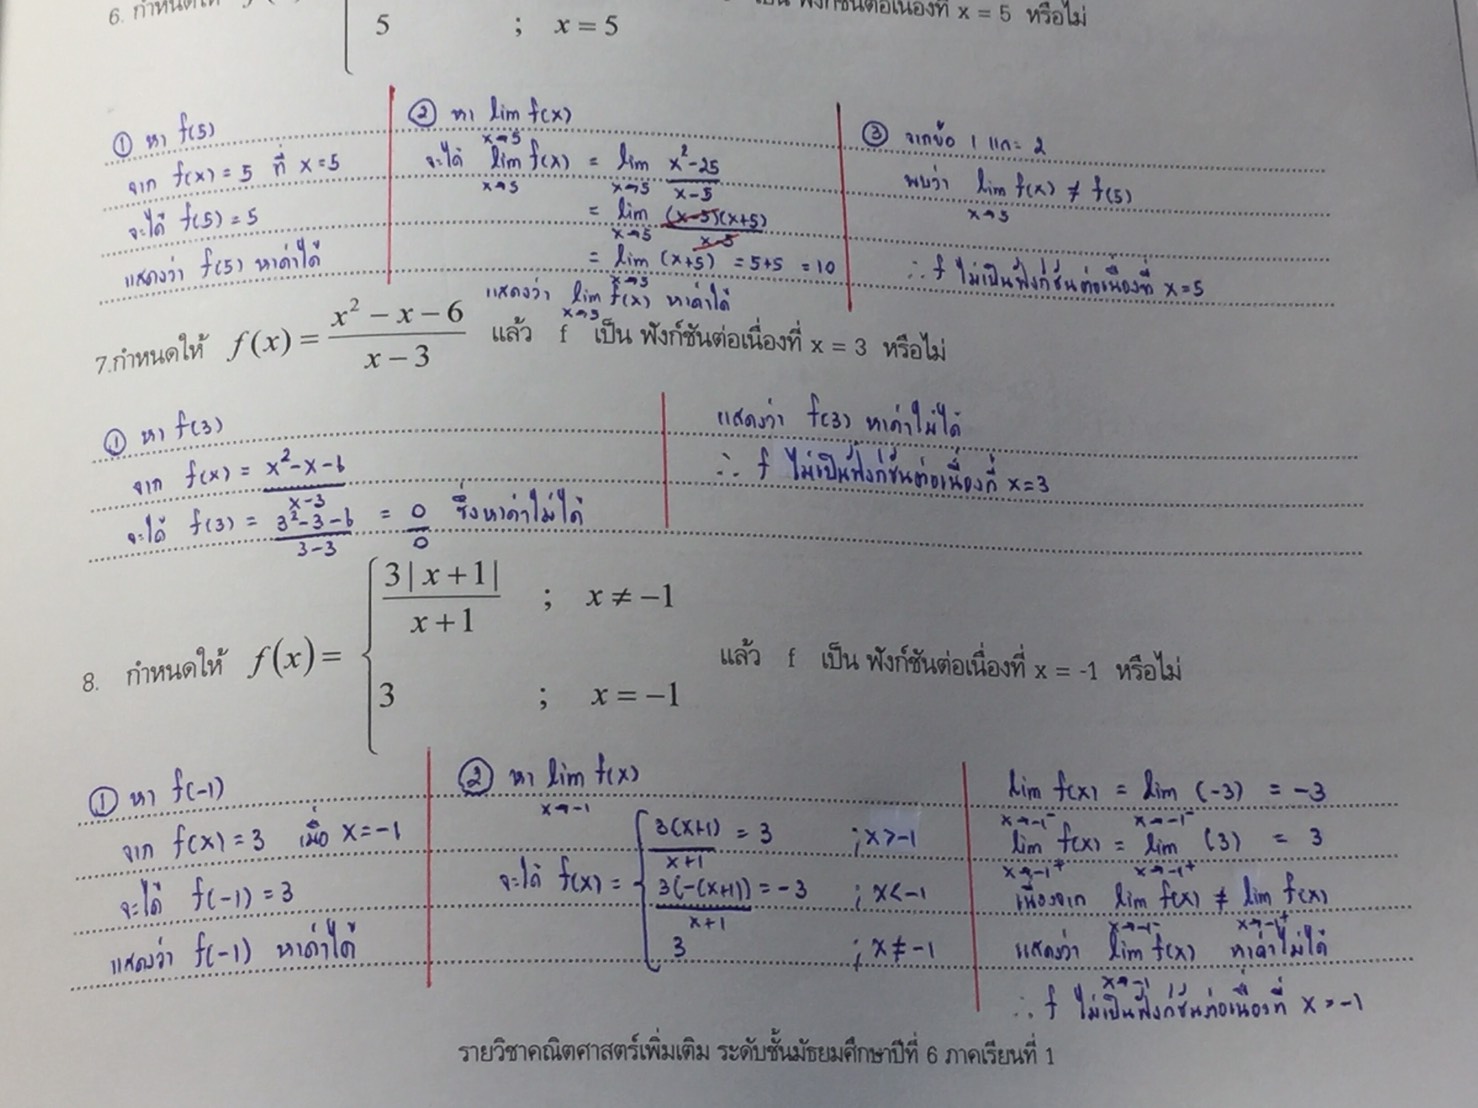 6. กำหนดให้
เป็น ฟังก์ชันต่อเนื่องที่ x = 5 หรือไม่
5 ; x = 5
① หา f(5)
จาก f(x) = 5 ที่ x = 5
จะได้ f(5) = 5
แสดงว่า f(5) หาค่าได้
② หา lim f(x)
x→5
จะได้ lim f(x) = lim x²-25
x→5 x→5 x-5
= lim (x-5)(x+5)
x→5 x-5
= lim (x+5) = 5+5 = 10
x→5
แสดงว่า lim f(x) หาค่าได้
x→5
③ จากข้อ 1 และ 2
พบว่า lim f(x) ≠ f(5)
x→5
∴ f ไม่เป็นฟังก์ชันต่อเนื่องที่ x=5
7.กำหนดให้ f(x) = x² − x − 6 / x − 3 แล้ว f เป็น ฟังก์ชันต่อเนื่องที่ x = 3 หรือไม่
① หา f(3)
จาก f(x) = x²-x-6
x-3
จะได้ f(3) = 3²-3-6 = 0 ซึ่งหาค่าไม่ได้
3-3 0
แสดงว่า f(3) หาค่าไม่ได้
∴ f ไม่เป็นฟังก์ชันต่อเนื่องที่ x=3
3 | x + 1 |
x + 1 ; x ≠ −1
8. กำหนดให้ f(x) = แล้ว f เป็น ฟังก์ชันต่อเนื่องที่ x = -1 หรือไม่
3 ; x = −1
① หา f(-1)
จาก f(x) = 3 เมื่อ x = -1
จะได้ f(-1) = 3
แสดงว่า f(-1) หาค่าได้
② หา lim f(x)
x→-1
3(x+1) = 3 ; x>-1
x+1
จะได้ f(x) = 3(-(x+1)) = -3 ; x<-1
x+1
3 ; x ≠ -1
lim f(x) = lim (-3) = -3
x→-1⁻ x→-1⁻
lim f(x) = lim (3) = 3
x→-1⁺ x→-1⁺
เนื่องจาก lim f(x) ≠ lim f(x)
x→-1⁻ x→-1⁺
แสดงว่า lim f(x) หาค่าไม่ได้
x→-1
∴ f ไม่เป็นฟังก์ชันต่อเนื่องที่ x = -1
รายวิชาคณิตศาสตร์เพิ่มเติม ระดับชั้นมัธยมศึกษาปีที่ 6 ภาคเรียนที่ 1